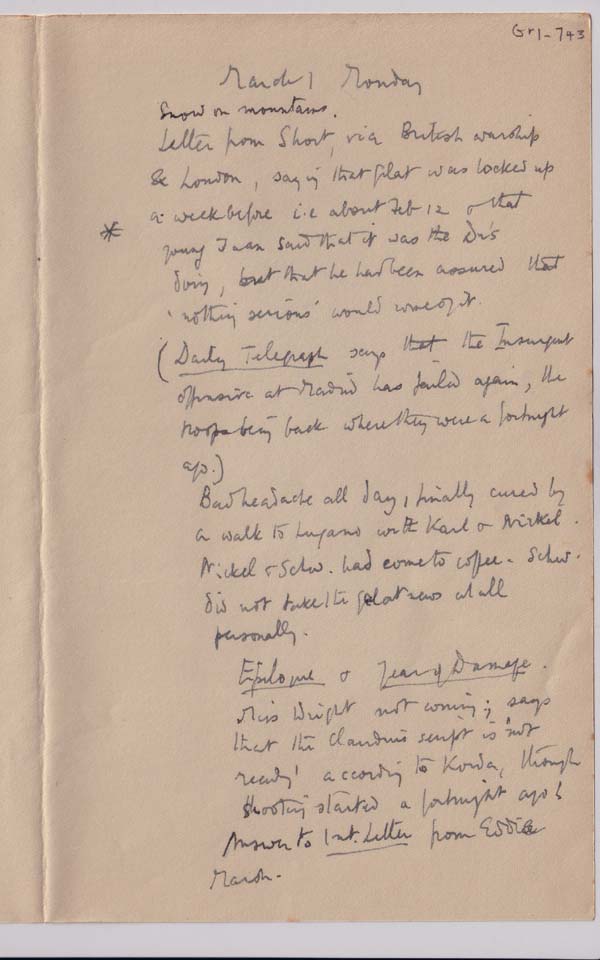 Gr1-743
March 1 Monday
Snow on mountains.
Letter from Short, via British warship
& London, saying that Gelat was locked up
a week before i.e. about Feb 12 & that
* young Juan said that it was the Dr's
doing, but that he had been assured that
'nothing serious' would come of it.
(Daily Telegraph says that the Insurgent
offensive at Madrid has failed again, the
troops being back where they were a fortnight
ago.)
Bad headache all day, finally cured by
a walk to Lugano with Karl & Nickel.
Nickel & Schw. had come to coffee - Schw.
did not take the Gelat news at all
personally.
Epilogue & Year of Damage.
Miss Wright not coming; says
that the Claudius script is 'not
ready' according to Korda, though
shooting started a fortnight ago!
Answer to Int. Letter from Eddie
Marsh.